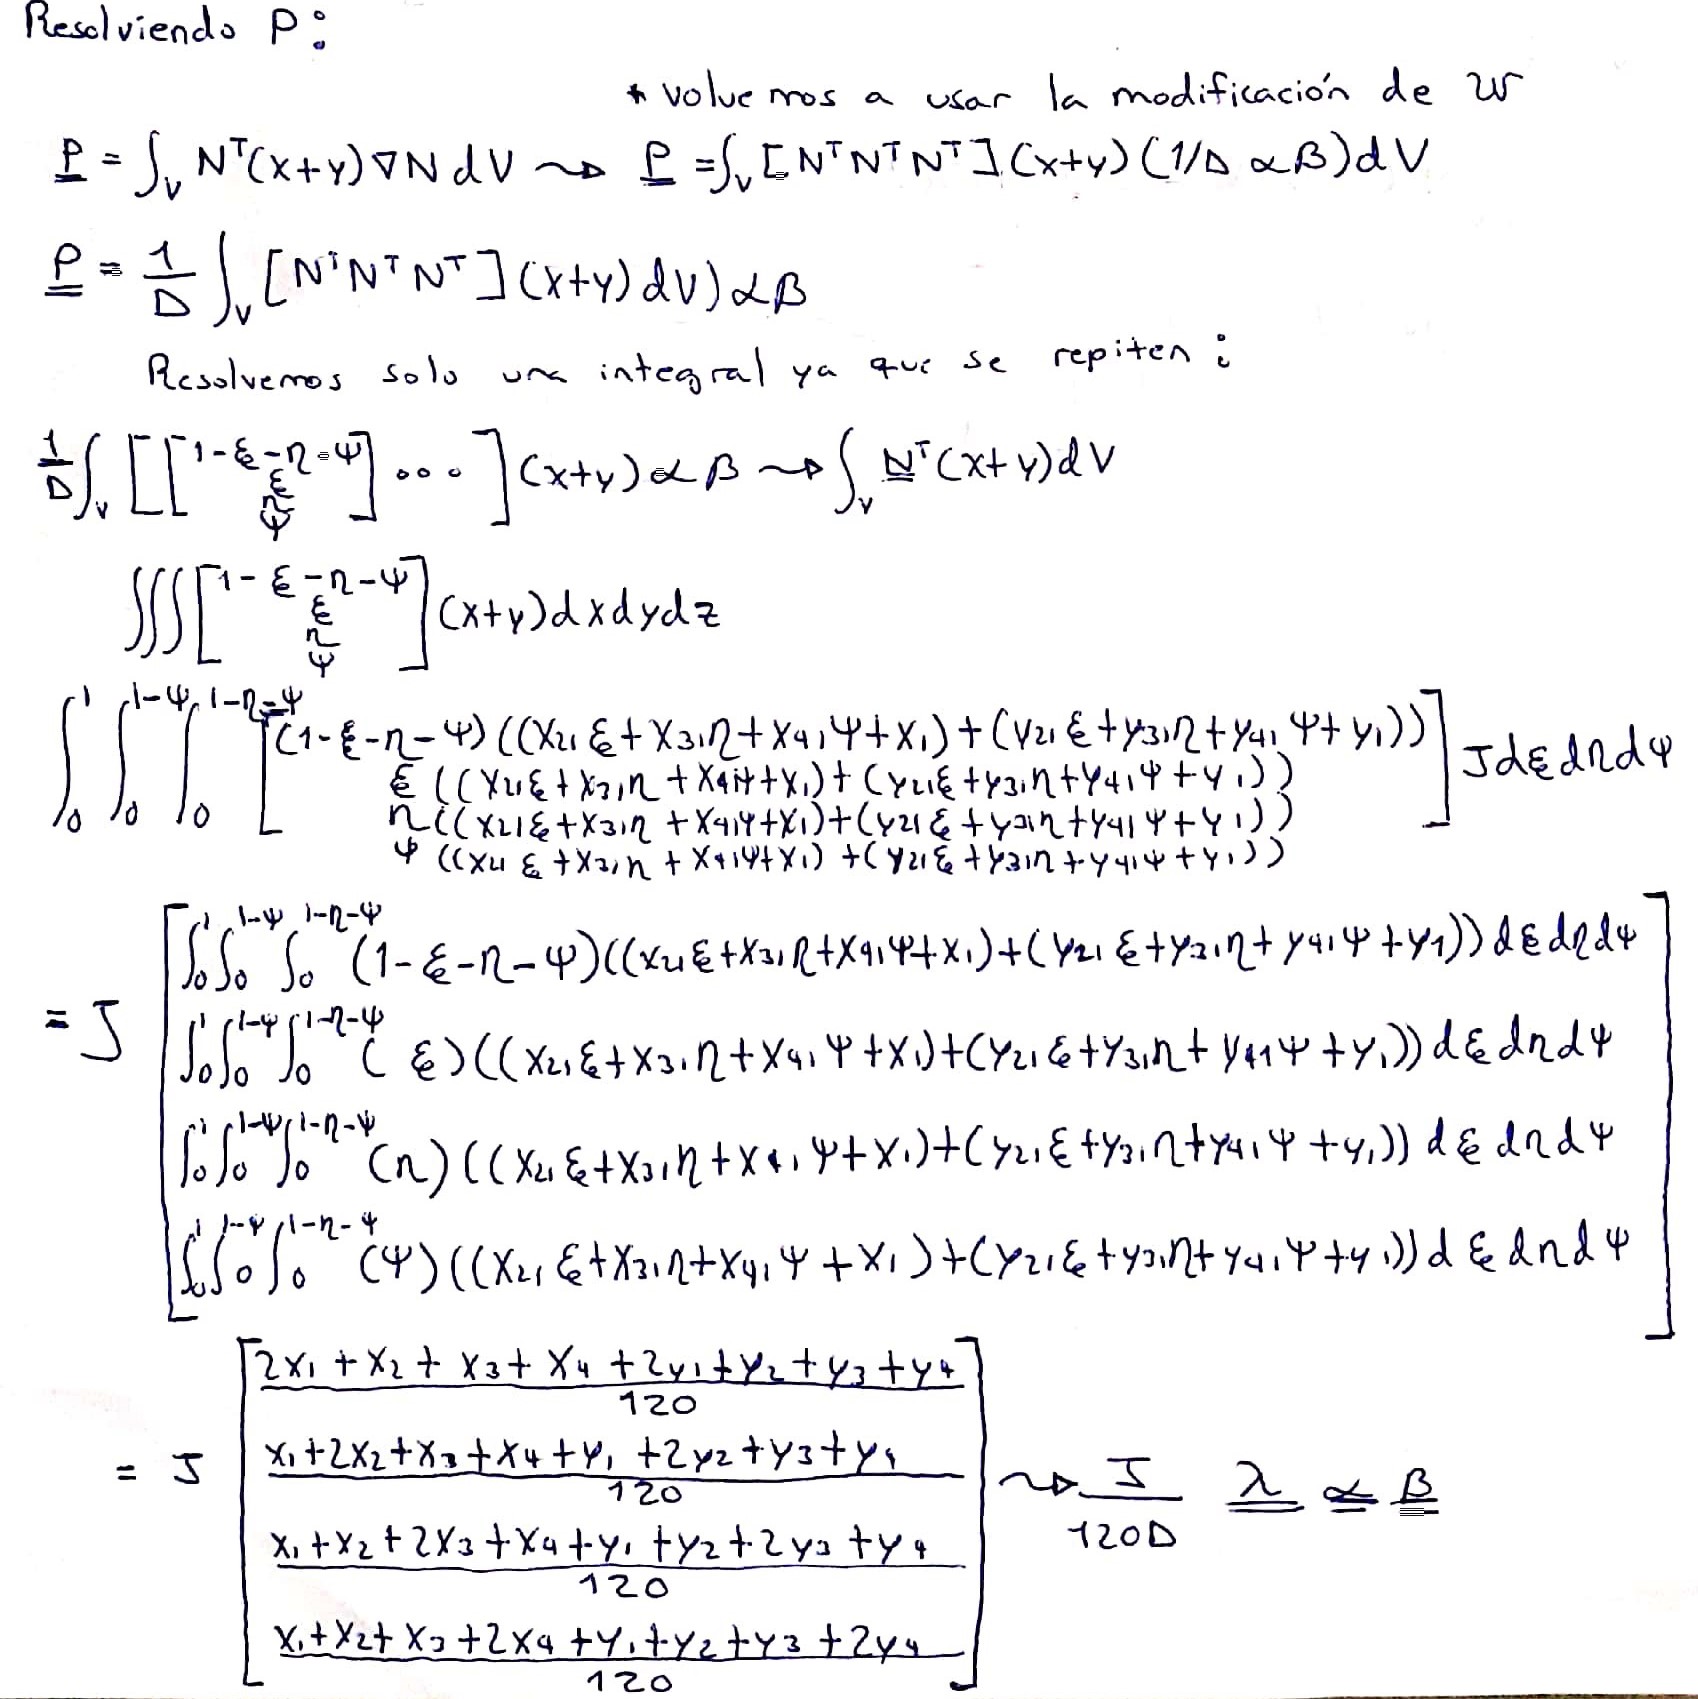 Resolviendo P:
* volvemos a usar la modificación de w
P = ∫v Nᵀ(x+y)∇N dV ⇝ P = ∫v [Nᵀ Nᵀ Nᵀ](x+y)(1/D αβ)dV
P = 1/D ∫v [Nᵀ Nᵀ Nᵀ](x+y)dV)αβ
Resolvemos solo una integral ya que se repiten:
1/D ∫v [[1-ξ-η-ψ ξ η ψ] ...](x+y)αβ ⇝ ∫v Nᵀ(x+y)dV
∫∫∫[1-ξ-η-ψ ξ η ψ](x+y)dxdydz
∫₀¹ ∫₀^1-ψ ∫₀^1-η-ψ [(1-ξ-η-ψ)((x21ξ+x31η+x41ψ+x1)+(y21ξ+y31η+y41ψ+y1))
ξ((x21ξ+x31η+x41ψ+x1)+(y21ξ+y31η+y41ψ+y1))
η((x21ξ+x31η+x41ψ+x1)+(y21ξ+y31η+y41ψ+y1))
ψ((x21ξ+x31η+x41ψ+x1)+(y21ξ+y31η+y41ψ+y1))] J dξdηdψ
= J [∫₀¹ ∫₀^1-ψ ∫₀^1-η-ψ (1-ξ-η-ψ)((x21ξ+x31η+x41ψ+x1)+(y21ξ+y31η+y41ψ+y1))dξdηdψ
∫₀¹ ∫₀^1-ψ ∫₀^1-η-ψ (ξ)((x21ξ+x31η+x41ψ+x1)+(y21ξ+y31η+y41ψ+y1))dξdηdψ
∫₀¹ ∫₀^1-ψ ∫₀^1-η-ψ (η)((x21ξ+x31η+x41ψ+x1)+(y21ξ+y31η+y41ψ+y1))dξdηdψ
∫₀¹ ∫₀^1-ψ ∫₀^1-η-ψ (ψ)((x21ξ+x31η+x41ψ+x1)+(y21ξ+y31η+y41ψ+y1))dξdηdψ]
= J [2x1+x2+x3+x4+2y1+y2+y3+y4
120
x1+2x2+x3+x4+y1+2y2+y3+y4
120
x1+x2+2x3+x4+y1+y2+2y3+y4
120
x1+x2+x3+2x4+y1+y2+y3+2y4
120] ⇝ J/120D λ α β